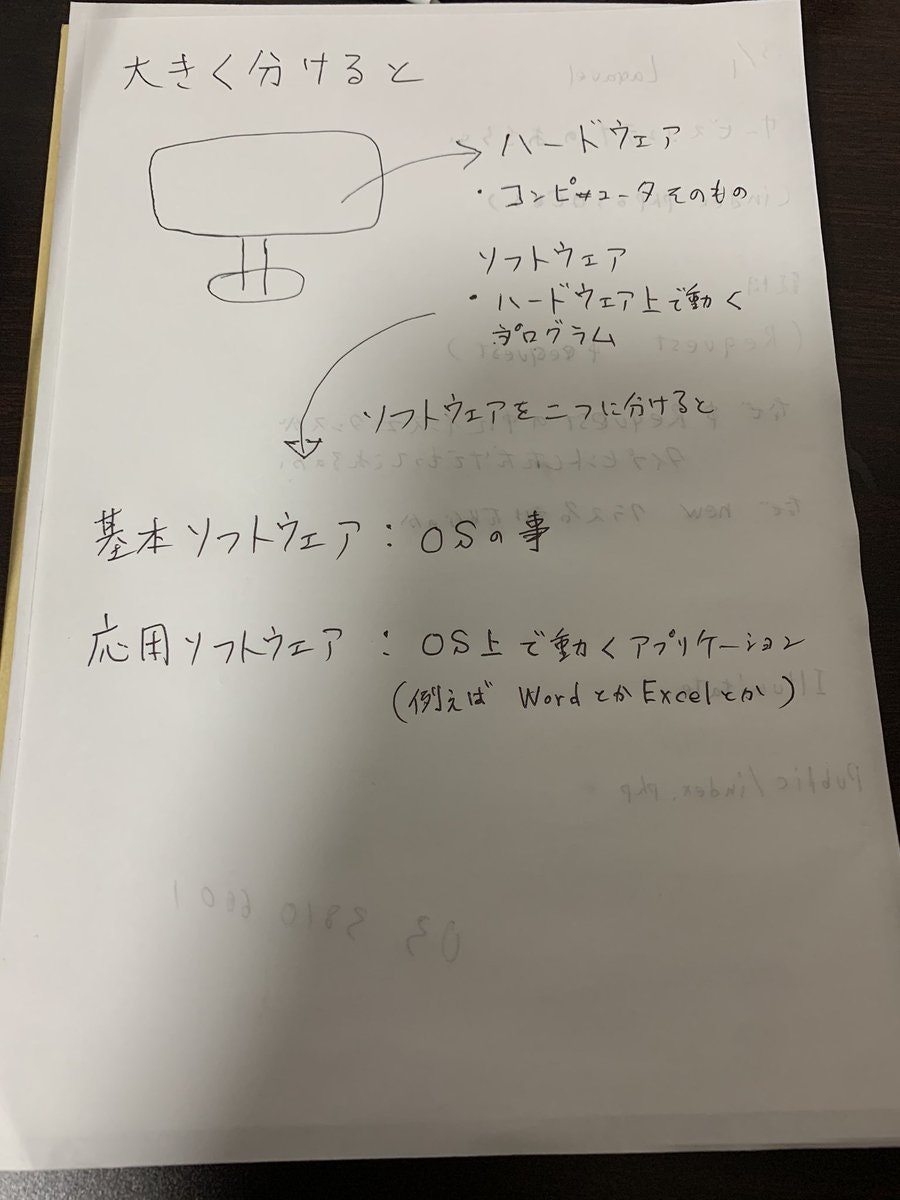 大きく分けると
ハードウェア
・コンピュータそのもの
ソフトウェア
・ハードウェア上で動く
プログラム
ソフトウェアを二つに分けると
基本ソフトウェア：OSの事
応用ソフトウェア：OS上で動くアプリケーション
(例えば WordとかExcelとか)